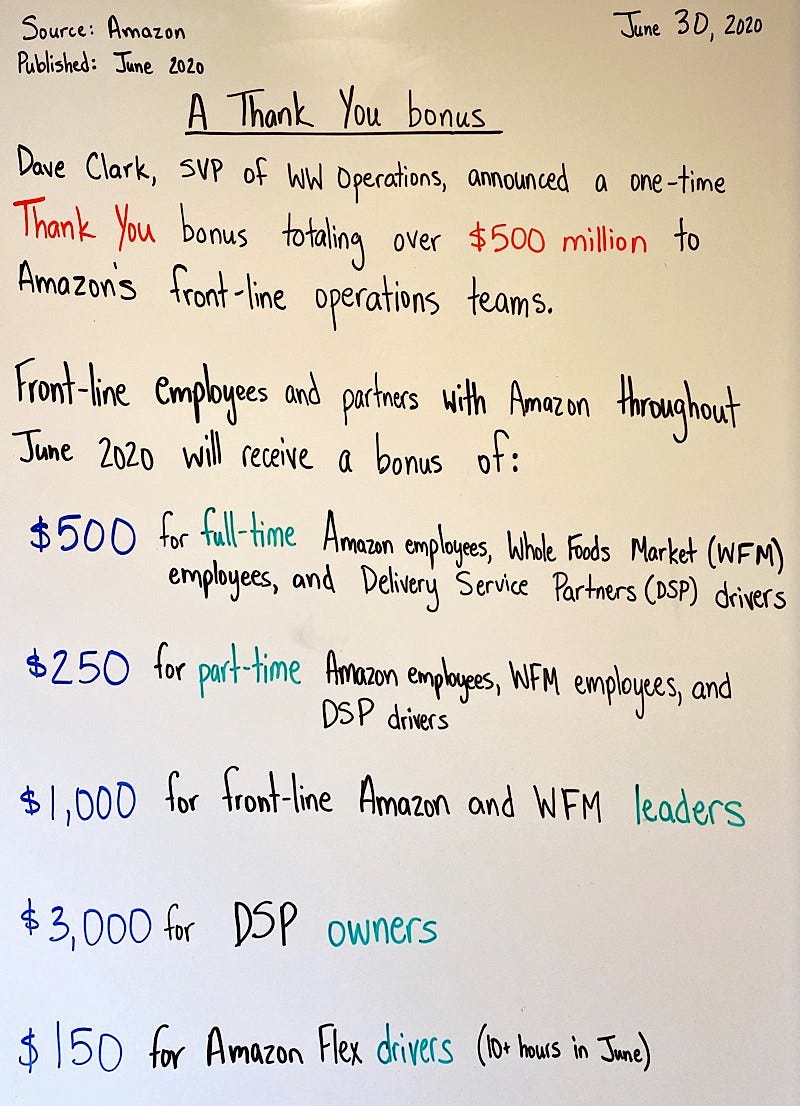 Source: Amazon
June 30, 2020
Published: June 2020
A Thank You bonus
Dave Clark, SVP of WW Operations, announced a one-time
Thank You bonus totaling over $500 million to
Amazon's front-line operations teams.
Front-line employees and partners with Amazon throughout
June 2020 will receive a bonus of:
$500 for full-time Amazon employees, Whole Foods Market (WFM)
employees, and Delivery Service Partners (DSP) drivers
$250 for part-time Amazon employees, WFM employees, and
DSP drivers
$1,000 for front-line Amazon and WFM leaders
$3,000 for DSP owners
$150 for Amazon Flex drivers (10+ hours in June)